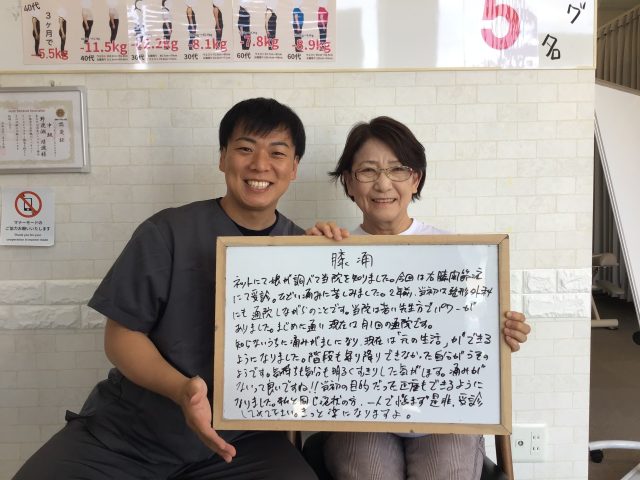 40代
3ヶ月で
-5.5kg
-11.5kg
40代
-12.2kg
60代
-8.1kg
30代
-7.8kg
60代
-8.9kg
60代
5
グ
名
マナーモードの
ご協力をお願いいたします
Thank you for your
cooperation in manner mode
膝痛
ネットにて娘が調べて当院を知りました。今回は右膝関節症
にて受診。ひどい痛みに苦しみました。2年前、当初は整形外科
にも通院しながらのことです。当院は若い先生方でパワーが
ありました。まじめに通い現在は月1回の通院です。
知らないうちに痛みがましになり、現在は「元の生活」ができる
ようになりました。階段も昇り降りできなかった自分がうその
ようです。気持ちも気分も明るくすっきりした気がします。痛みが
ないって良いですね!!当初の目的だった正座もできるように
なりました。私と同じ症状の方、一人で悩まず是非、受診
してみて下さい。きっと楽になりますよ。